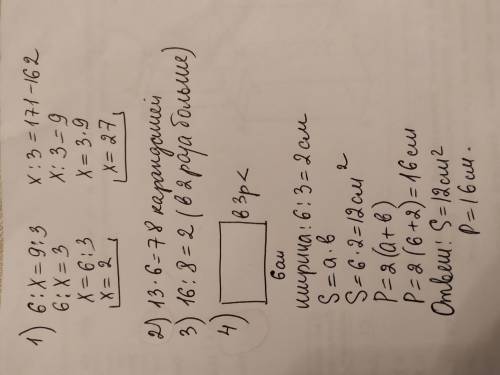 1) 6 : x = 9 : 3
6 : x = 3
x = 6 : 3
x = 2
x : 3 = 171 - 162
x : 3 = 9
x = 3 · 9
x = 27
2) 13 · 6 = 78 карандашей
3) 16 : 8 = 2 (в 2 раза больше)
4)
в 3 р <
6 см
ширина: 6 : 3 = 2 см
S = a · в
S = 6 · 2 = 12 см²
P = 2 (a + в)
P = 2 (6 + 2) = 16 см
Ответ: S = 12 см²
P = 16 см.